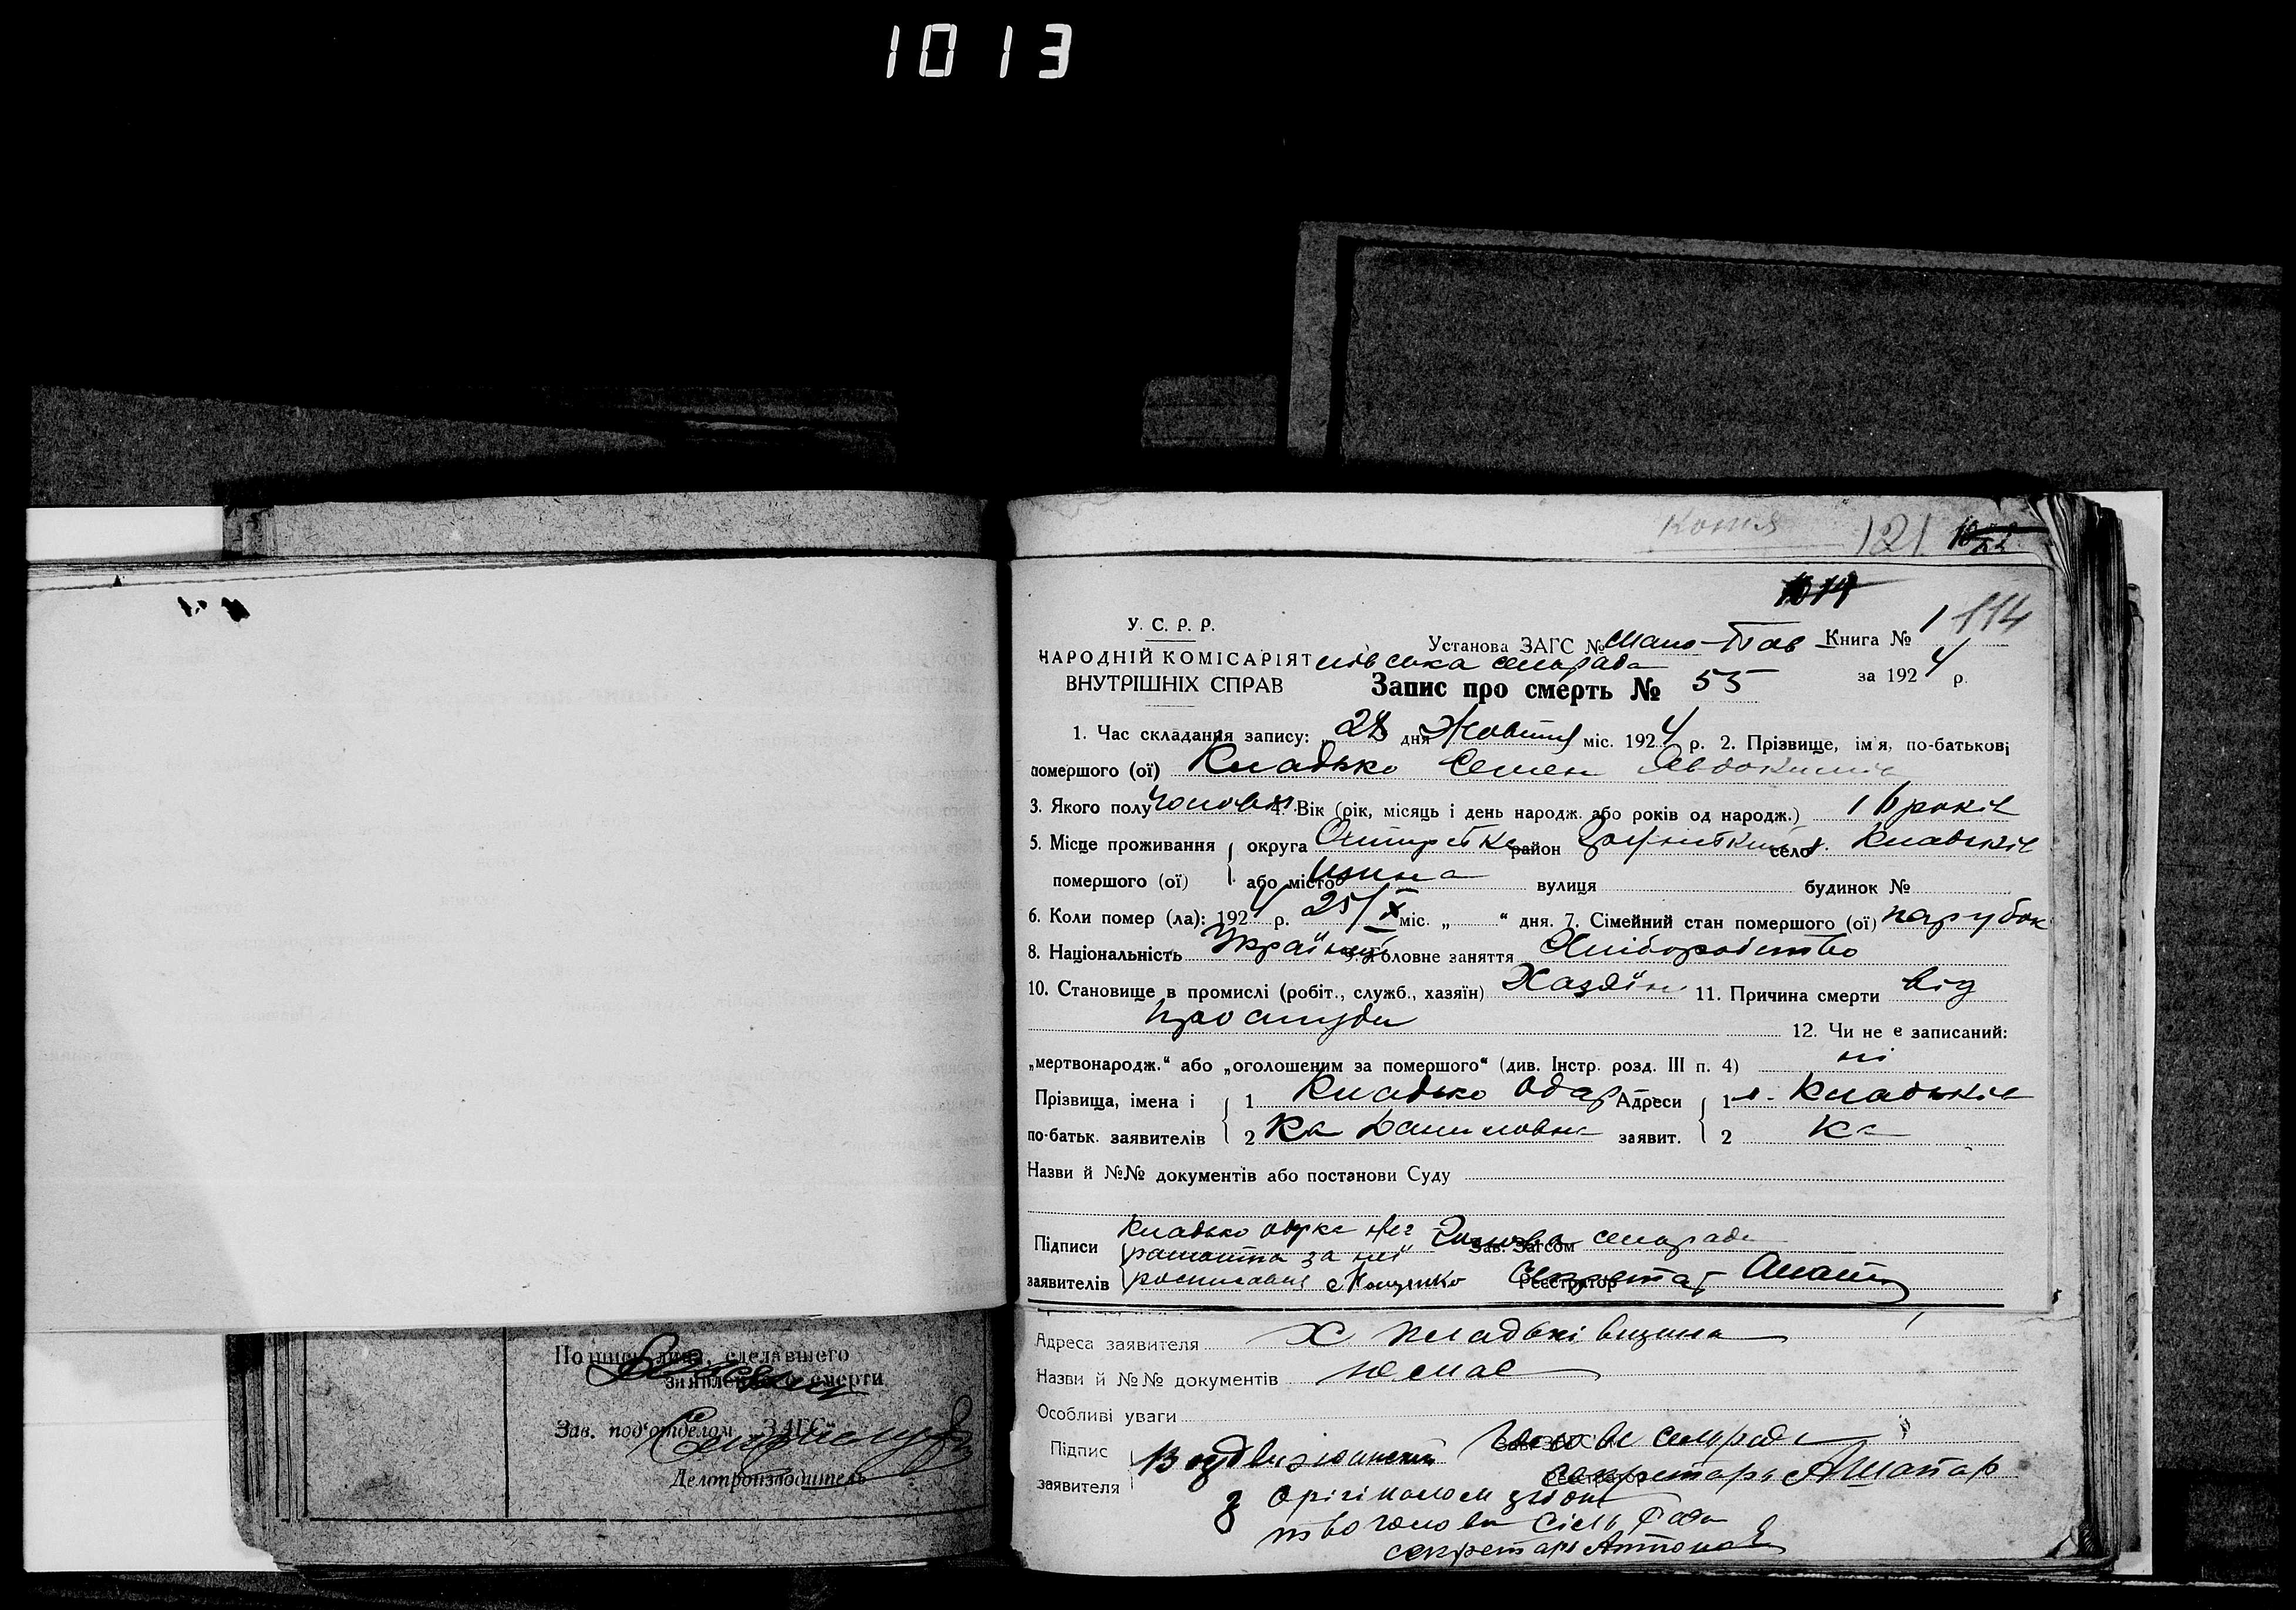 1013
Копия 121
1014
1 114
У. С. Р. Р.
Установа ЗАГС № Мало-Пав Книга №
НАРОДНІЙ КОМІСАРІЯТ лівська сельрада
ВНУТРІШНІХ СПРАВ Запис про смерть № 55 за 1924 р.
1. Час складання запису: „28 дня Жовтня міс. 1924 р. 2. Прізвище, імя, по-батькові
помершого (ої) Кладько Семен Явдокимів
3. Якого полу чоловік. 4. Вік (рік, місяць і день народж. або років од народж.) 16 років
5. Місце проживання округа район село х. Кладьків
помершого (ої) або місто щина вулиця будинок №
6. Коли помер (ла): 1924 р. 25/X міс. „ “ дня. 7. Сімейний стан помершого (ої) парубок
8. Національність Українец 9. Головне заняття Хліборобство
10. Становище в промислі (робіт., служб., хазяїн) Хазяїн 11. Причина смерти від
простуди 12. Чи не є записаний:
„мертвонародж.“ або „оголошеним за помершого“ (див. Інстр. розд. III п. 4) ні
Прізвища, імена і 1 Кладько Одар Адреси 1 х. Кладьків
по-батьк. заявителів 2 ка Даниловна заявит. 2 ка
Назви й №№ документів або постанови Суду
Підписи Кладько Одарка Нег Голова Зав. Загсом сельради
рамотна за неї
заявителів росписався Секретар Реєстратор
Адреса заявителя Х Кладьківщина
Назви й №№ документів немає
Особливі уваги
Підпис Воздвиженский Голова сельради
заявителя Секретарь Реєстратор
З Орігіналом згідно
Голова Сіль Ради
секретарь
Подпись лица, сделавшего
заявление о смерти
Зав. под'отделом ЗАГС
Делопроизводитель